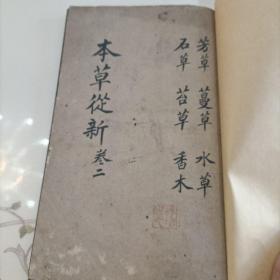 芳草 蔓草 水草
石草 苔草 香木
本草從新 卷二